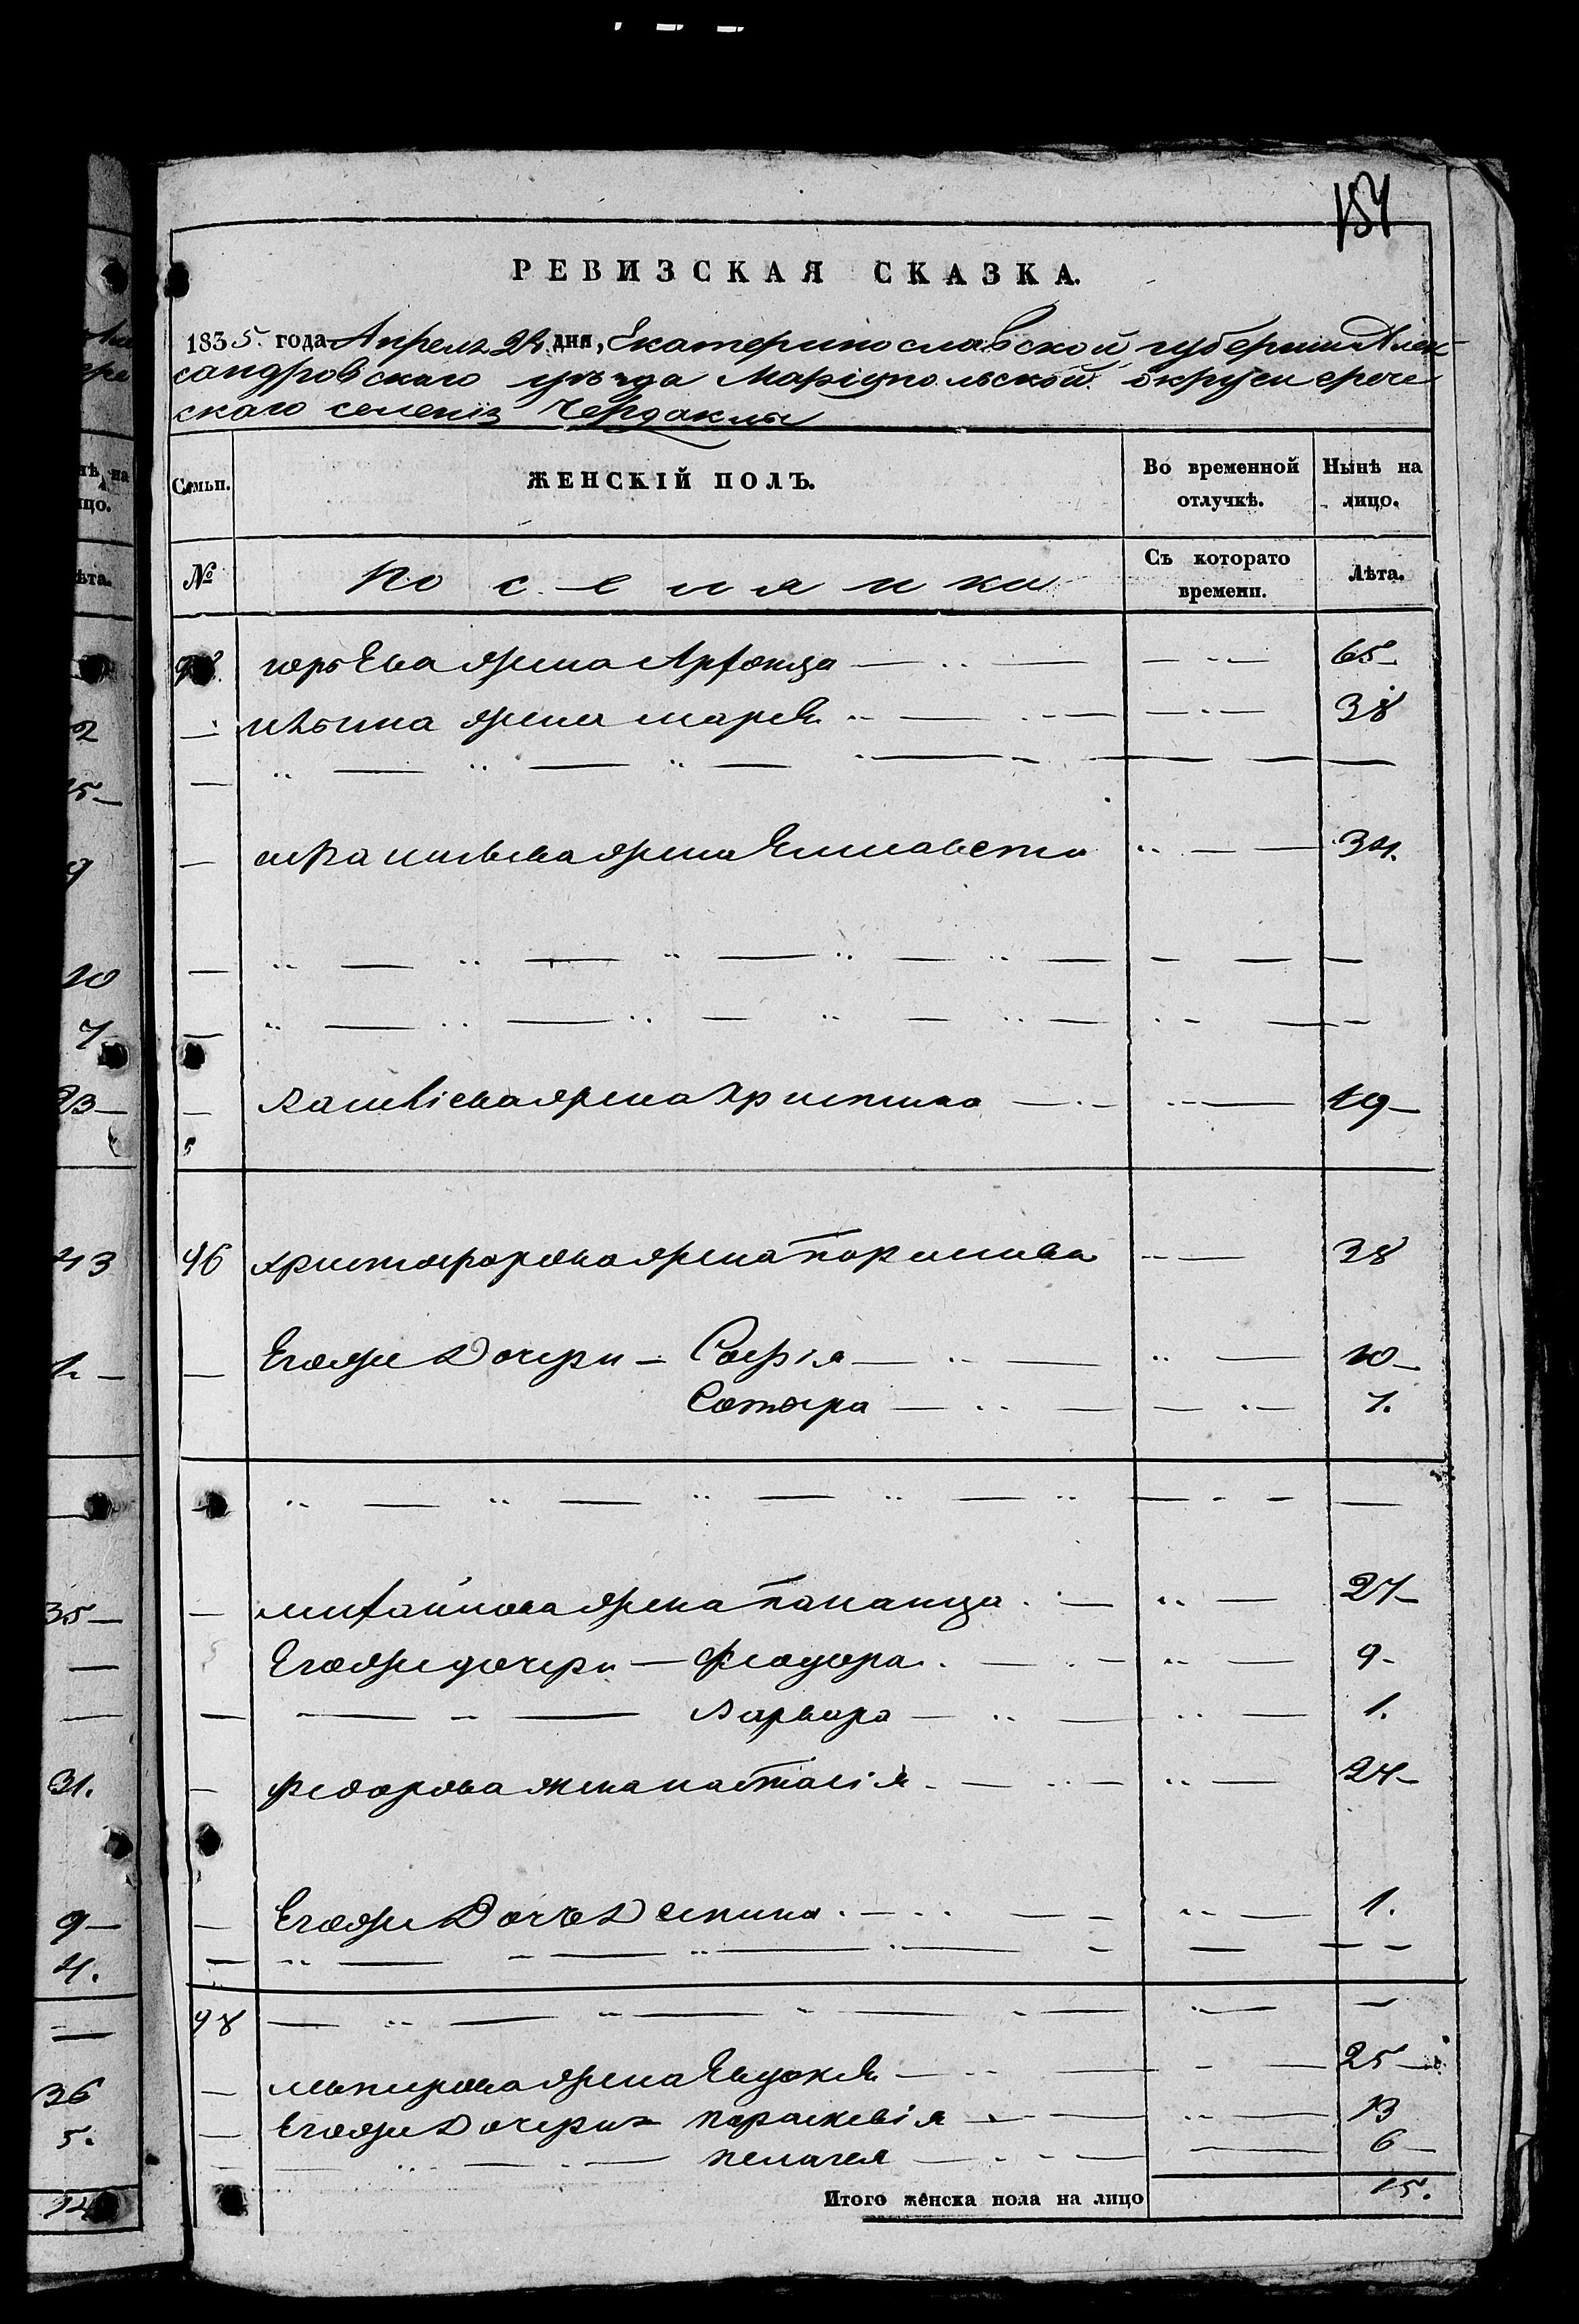 154
РЕВИЗСКАЯ СКАЗКА.
1835. года Апреля 24. дня, Екатеринославской губернии Алек-
сандровскаго уѣзда Маріупольской округи грече
скаго селенія Чердаклы
Семьи. ЖЕНСКІЙ ПОЛЪ. Во временной отлучкѣ. Нынѣ на лицо.
№ Поселянки Съ которато времени. Лѣта.
юрьева жена Арфонца — 65
ильина жена марія — 38
— жена Елисавета — 34.
Васивіева жена Христина — 19
96 христофорова жена Парасива — 38
Егожъ Дочери — Софія — 10
Сотира — 7.
михайлова жена панаица — 27
Егожъ дочери — феодора — 9
Варвара — 1.
федорова жена настасія — 24
Егожъ Дочь Деспина — 1.
98
жена Евдокія — 25
Егожъ Дочери параскевія — 13
пелагея — 6
Итого женска пола на лицо 15.